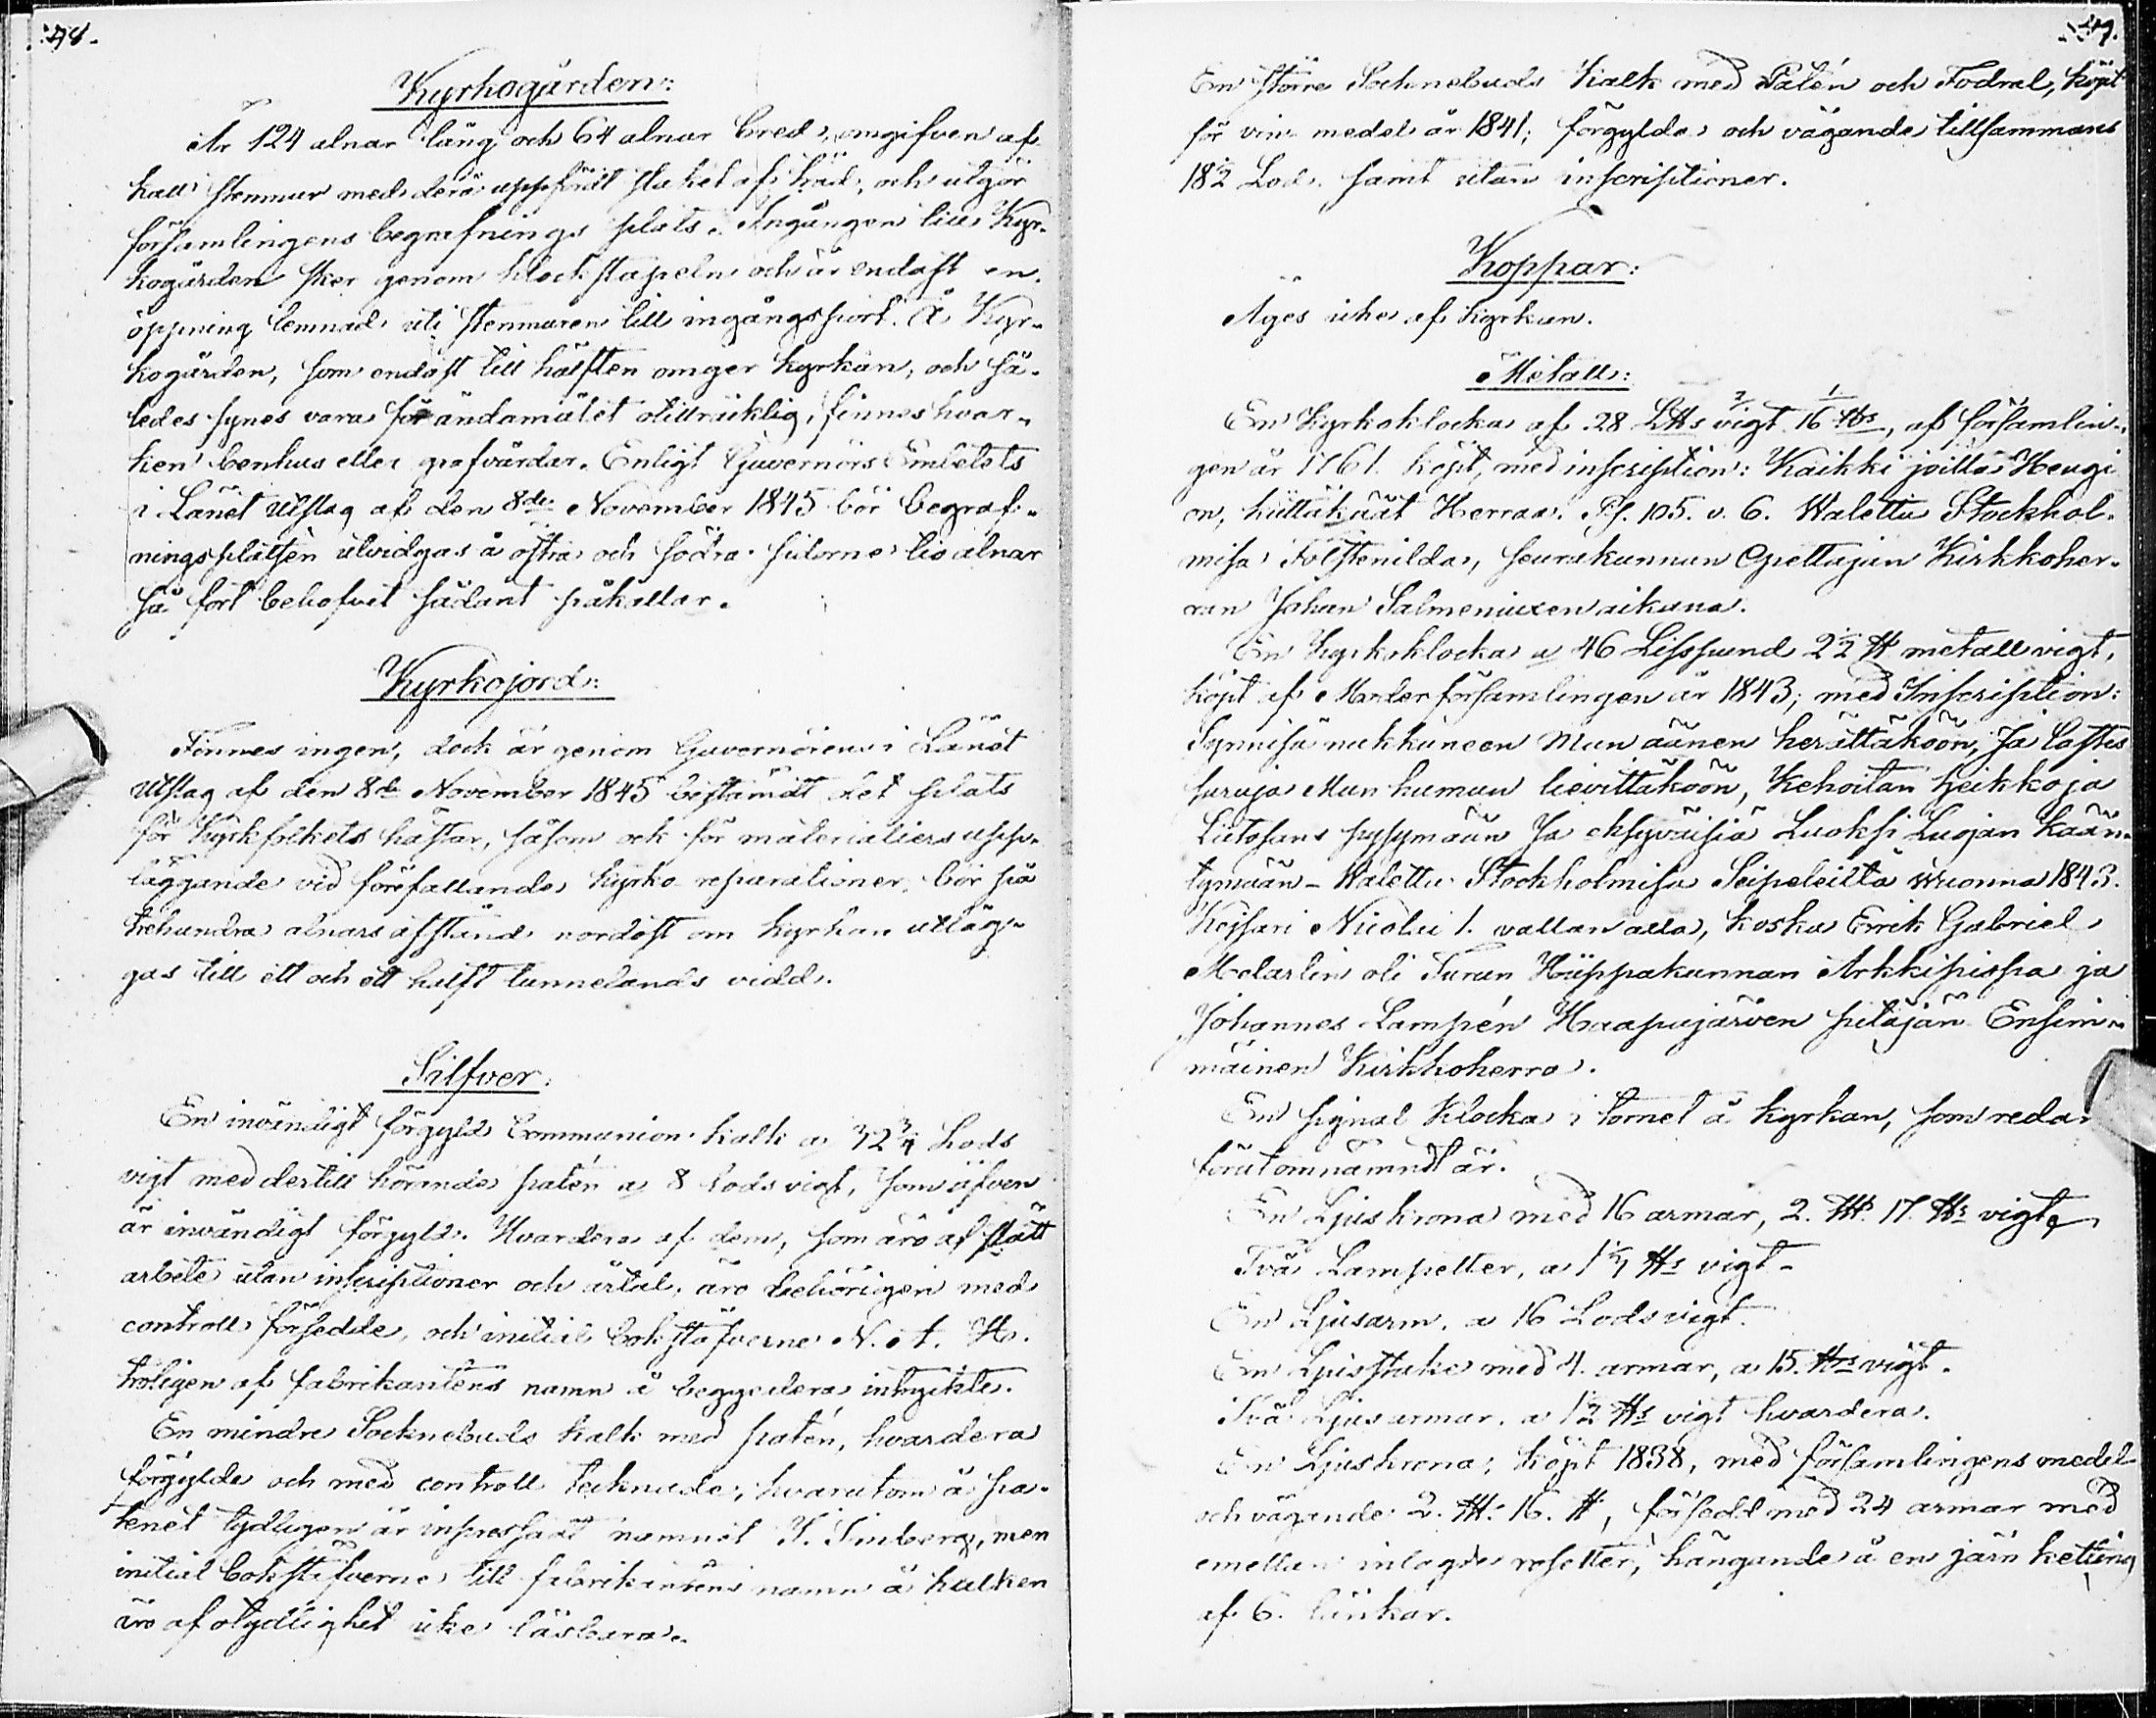 48.
Kyrkogården:
Är 124 alnar lång och 64 alnar bred, omgifven af
kall stenmur med derå uppfördt staket af träd, och utgör
församlingens begrafnings plats. Ingången till Kyr-
kogården sker genom klockstapeln och är endast en
öppning lemnad uti stenmuren till ingångsport. Å Kyr-
kogården, som endast till hälften omger kyrkan, och så-
ledes synes vara för ändamålet otillräcklig, finnes hvar-
ken benhus eller grafvårdar. Enligt Guvernörs Embetets
i Länet Utslag af den 8de November 1845 bör begraf-
ningsplatsen utvidgas å östra och södra sidorne tio alnar
så fort behofvet sådant påkallar.
Kyrkojord:
Finnes ingen, dock är genom Guvernörens i Länet
Utslag af den 8de November 1845 bestämdt det plats
för kyrkfolkets hästar, såsom ock för materialiers upp-
läggande vid förefallande kyrko reparationer, bör på
trehundra alnars afstånd nordost om kyrkan utläg-
gas till ett och ett halft tunnelands vidd.
Silfver:
En invändigt förgyld Communion kalk a 32 3/4 Lods
vigt med dertill hörande patén a 8 lods vigt, som äfven
är invändigt förgyld. Hvardera af dem, som äro af slätt
arbete utan inscriptioner och årtal, äro behörigen med
controll försedde, och initial bokstäfverne N. A. H.
troligen af fabrikantens namn å begge dera intryckte.
En mindre Socknebuds kalk med patén, hvardera
förgylde och med controll tecknade, hvarutom å pa-
tenet tydligen är inpressadt namnet I. Simberg, men
initial bokstäfverne till fabrikantens namn å kalken
äro af otydlighet icke läsbara.
49.
En större Socknebuds Kalk med Patén och Fodral, köpt
för vin medel år 1841, förgylde och vägande tillsammans
18 1/2 Lod, samt utan inscriptioner.
Koppar:
Äges icke af kyrkan.
Metall:
En Kyrkoklocka af 28 L℔s vigt 16 ℔s, af församlin-
gen år 1761 köpt, med inscription: Kaikki joilla Hengi
on, kiittäkäät Herraa. Ps. 105. v. 6. Walettu Stockhol-
misa Folstenilda, seurakunnan Opettajan Kirkkoher-
ran Johan Salmeniuxen aikana.
En Kyrkoklocka a 46 Lisspund 2 1/2 ℔ metall vigt,
köpt af Moderförsamlingen år 1843, med Inscription:
Synnisä nukkuneen Mun äänen herättäköön, Ja lastes
suruja Mun humun lievittäköön, Kehoitan heikkoja
Liitosans pysymään Ja eksyväisiä Luoksi Luojan kään-
tymään - Walettu Stockholmisa Seipeleiltä Wuonna 1843.
Keisari Nicolai 1. vallan alla, koska Errik Gabriel
Melartin oli Turun Hiippakunnan Arkkipispa ja
Johannes Lampén Haapajärven pitäjän Ensim-
mäinen Kirkkoherra.
En signal Klocka i tornet å kyrkan, som reda
förut omnämndt är.
En Ljuskrona med 16 armar, 2. L℔ 17. ℔s vigt
Två Lampetter, a 1 1/4 ℔s vigt.
En Ljusarm, a 16 Lods vigt.
En Ljusstake med 4. armar, a 15. ℔s vigt.
Två Ljusarmar, a 1 1/2 ℔s vigt hvardera.
En Ljuskrona, köpt 1838, med församlingens medel
och vägande 2. L℔ 16. ℔, försedd med 24 armar med
emellan inlagde rosetter, hängande å en järn ketting
af 6. länkar.